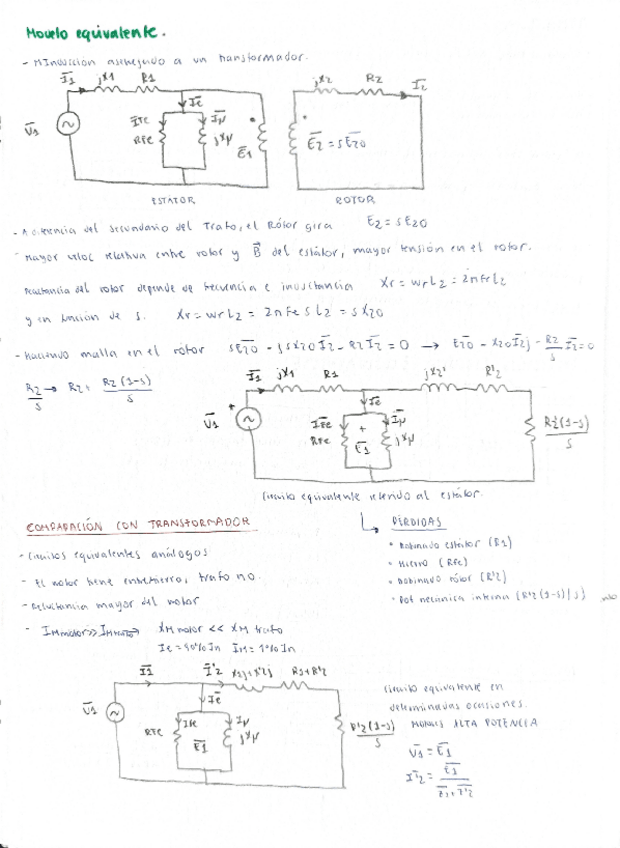 Modelo equivalente.
- M Inducción asemejado a un transformador.
I1 jX1 R1
Ie
IFe Iμ
RFe jXμ
V1
E1
jX2 R2 I2
E2 = sE20
ESTATOR ROTOR
- A diferencia del secundario del trafo, el Rotor gira E2 = sE20
- Mayor veloc relativa entre rotor y B del estátor, mayor tensión en el rotor.
reactancia del rotor depende de frecuencia e inductancia Xr = wrL2 = 2πfrL2
y en función de s. Xr = wrL2 = 2πFe s L2 = sX20
- haciendo malla en el rótor sE20 - jsX20I2 - R2I2 = 0 → E20 - X20I2j - R2/s I2 = 0
R2/s → R2 + R2(1-s)/s
I1 jX1 R1 jX2' R'2
Ie
V1
IFe + Iμ
RFe E1 jXμ
R2'(1-s)/s
Circuito equivalente referido al estátor.
COMPARACIÓN CON TRANSFORMADOR
- Circuitos equivalentes análogos
- El motor tiene entrehierro, trafo no.
- Reluctancia mayor del motor
- IM motor >> IM trafo XM motor << XM trafo
Ie = 40% In IM = 1% In
↳ PÉRDIDAS
• Bobinado estátor (R1)
• Hierro (RFe)
• Bobinado rótor (R'2)
• Pot mecánica interna (R'2(1-s)/s) no
I1 I'2 X1j+X'2j R1+R'2
Ie
V1
IFe Iμ
RFe E1 jXμ
R'2(1-s)/s
Circuito equivalente en
determinadas ocasiones.
ALTA POTENCIA
V1 = E1
I'2 = E1/(Z1+Z'2)